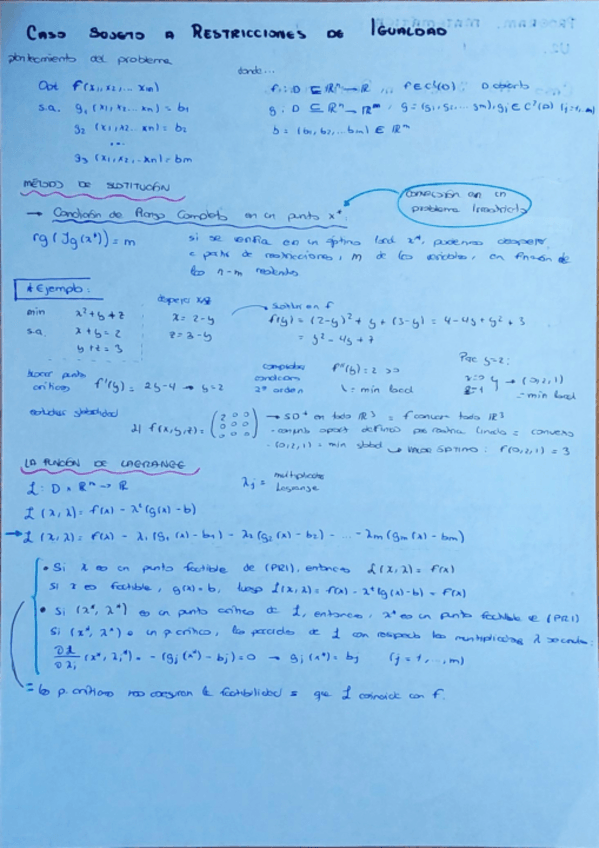 CASO SUJETO A RESTRICCIONES DE IGUALDAD
planteamiento del problema
donde...
Opt f(x₁, x₂, ... xn)
s.a. g₁ (x₁, x₂, ... xn) = b₁
g₂ (x₁, x₂ ... xn) = b₂
...
g₃ (x₁, x₂, ... xn) = bm
f: D ⊆ ℝⁿ → ℝ , f ∈ C²(D) D abierto
g: D ⊆ ℝⁿ → ℝᵐ , g = (g₁, g₂, ... gm), gj ∈ C²(D) (j=1,..,m)
b = (b₁, b₂, ... bm) ∈ ℝᵐ
MÉTODO DE SUSTITUCIÓN
conversión en un
problema irrestricto
→ Condición de Rango Completo en un punto x*:
rg(Jg(x*)) = m
si se verifica en un óptimo local x*, podemos despejar,
a partir de restricciones, m de las variables, en función de
las n-m restantes
* Ejemplo:
min x² + y + z
s.a. x + y = 2
y + z = 3
despejar x,z
x = 2 - y
z = 3 - y
sustituir en f
f(y) = (2-y)² + y + (3-y) = 4 - 4y + y² + 3
= y² - 4y + 7
buscar punto
críticos f'(y) = 2y - 4 → y = 2
comprobar
condiciones
2º orden
f''(y) = 2 > 0
↳ = min local
Para y = 2:
x=0
z=1 → (0,2,1)
= min local
estudiar globalidad
f(x,y,z) = (2 0 0
0 0 0
0 0 0)
→ SD⁺ en todo ℝ³ = f convex todo ℝ³
- conjunto oport. definido por restric lineales = convexo
- (0,2,1) = min global ↳ VALOR ÓPTIMO: f(0,2,1) = 3
LA FUNCIÓN DE LAGRANGE
ℒ: D × ℝᵐ → ℝ
λj = multiplicador
Lagrange
ℒ (x, λ) = f(x) - λᵗ(g(x) - b)
→ ℒ (x, λ) = f(x) - λ₁(g₁(x) - b₁) - λ₂(g₂(x) - b₂) - ... - λm(gm(x) - bm)
• Si x es un punto factible de (PRI), entonces ℒ(x, λ) = f(x)
Si x es factible, g(x) = b, luego ℒ(x, λ) = f(x) - λᵗ(g(x) - b) = f(x)
• Si (x*, λ*) es un punto crítico de ℒ, entonces, x* es un punto factible de (PRI)
Si (x*, λ*) es un p. crítico, las parciales de ℒ con respecto los multiplicadores λ
∂ℒ/∂λj (x*, λ*) = -(gj(x*) - bj) = 0 → gj(x*) = bj (j = 1, .., m)
= los p. críticos nos aseguran la factibilidad = que ℒ coincide con f.